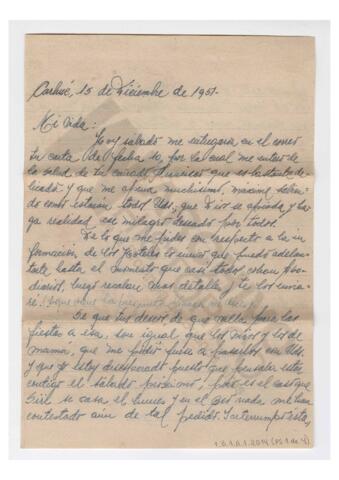 Carhué, 15 de Diciembre de 1951.
Mi Vida:
Hoy sábado me entregaron en el correo
tu carta de fecha 10, por la cual me entero de
la salud de tu cuñado Francisco que es bastante de-
licada y que me apena muchísimo, máxime sabien-
do como estarán todos Uds. que Dios se apiade y ha-
ga realidad ese milagro deseado por todos.
De lo que me pides con respecto a la in-
formación, de los hoteles lo único que puedo adelan-
tarte hasta el momento que casi todos cobran
diarios, luego más detalles, te los envia-
ré.
De que tus deseos de que vaya para las
fiestas a esa, son igual que los míos y los de
mamá, que me pidió fuese a pasarlos con Uds.
y que yo estoy descansado puesto que pensaba estar
contigo el sábado próximo, pero es el caso que
se casa el lunes y en el no me han
contestado aún de tal pedido. Interrumpo ésta,
1.0.1.A.1.2014 (PS 1 de 4)